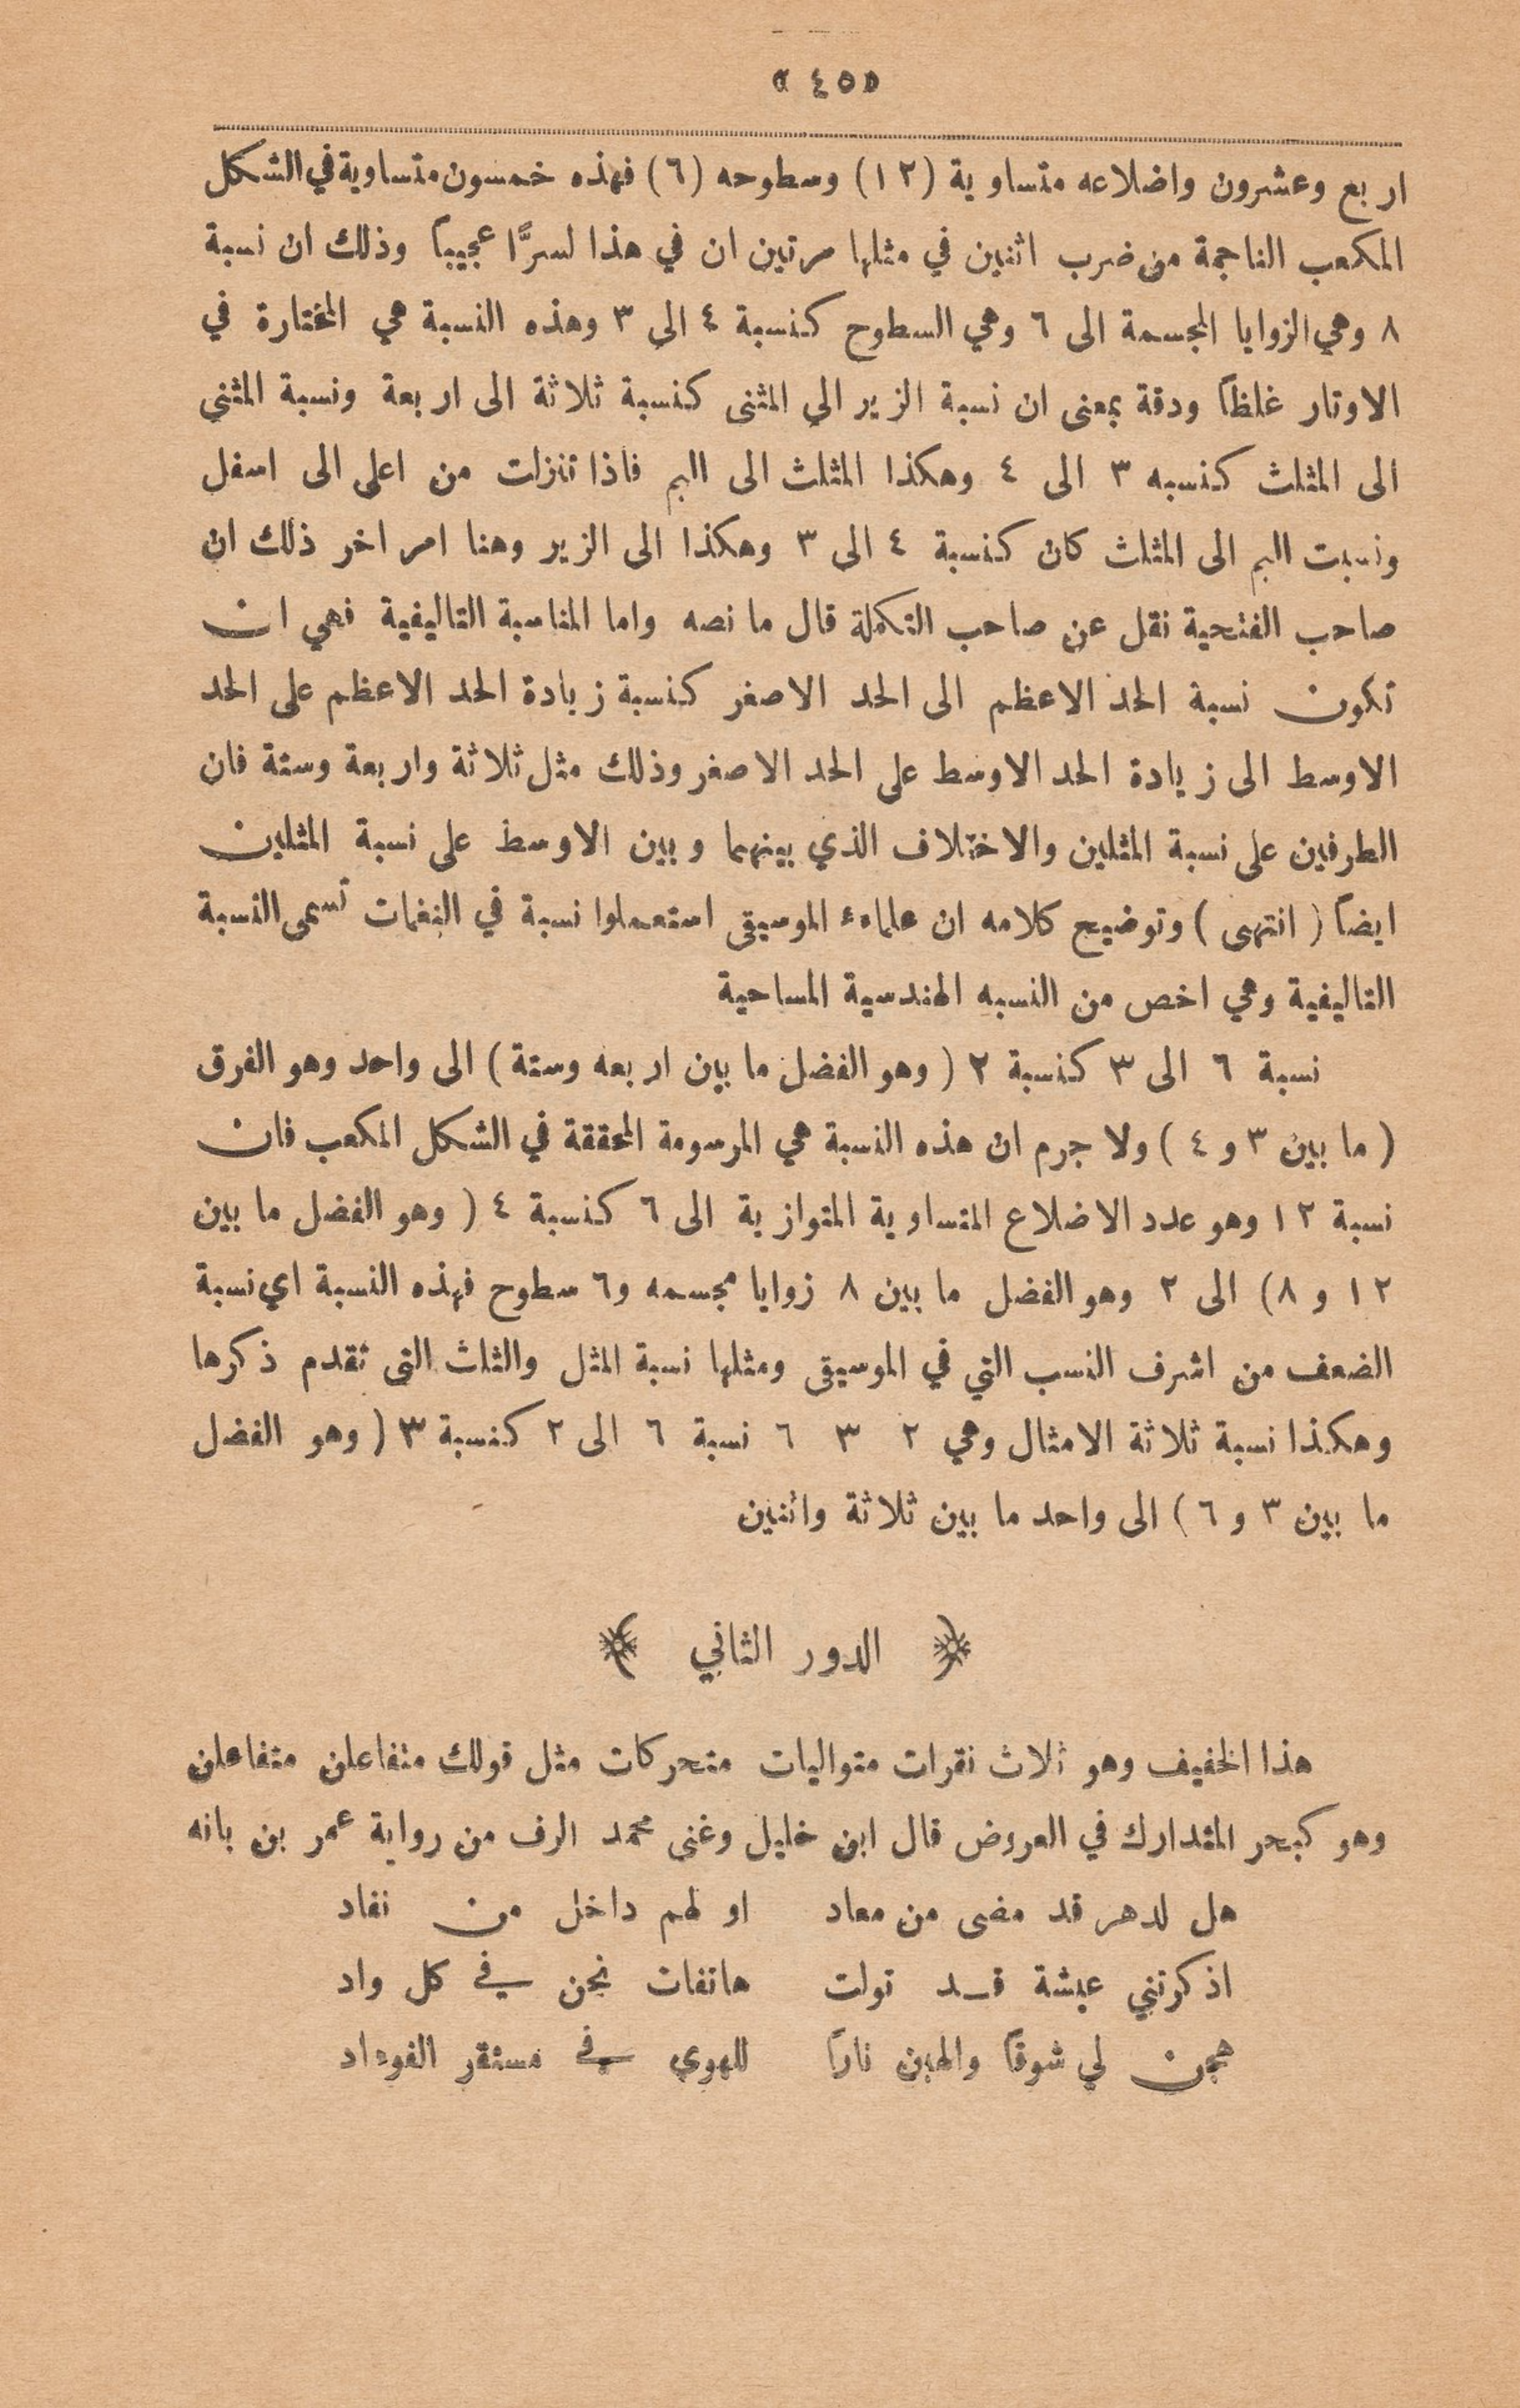 «٤٥»
اربع وعشرون واضلاعه متساوية (١٢) وسطوحه (٦) فهذه خمسون متساوية في الشكل
المكعب الناجمة من ضرب اثنين في مثلها مرتين ان في هذا لسرًّا عجيباً وذلك ان نسبة
٨ وهي الزوايا المجسمة الى ٦ وهي السطوح كنسبة ٤ الى ٣ وهذه النسبة هي المختارة في
الاوتار غلظاً ودقة بمعنى ان نسبة الزير الى المثنى كنسبة ثلاثة الى اربعة ونسبة المثنى
الى المثلث كنسبه ٣ الى ٤ وهكذا المثلث الى البم فاذا تنزلت من اعلى الى اسفل
ونسبت البم الى المثلث كان كنسبة ٤ الى ٣ وهكذا الى الزير وهنا امر اخر ذلك ان
صاحب الفتحية نقل عن صاحب التكملة قال ما نصه واما المناسبة التاليفية فهي ان
تكون نسبة الحد الاعظم الى الحد الاصغر كنسبة زيادة الحد الاعظم على الحد
الاوسط الى زيادة الحد الاوسط على الحد الاصغر وذلك مثل ثلاثة واربعة وستة فان
الطرفين على نسبة المثلين والاختلاف الذي بينهما وبين الاوسط على نسبة المثلين
ايضاً ( انتهى ) وتوضيح كلامه ان علماء الموسيقى استعملوا نسبة في النغمات تسمى النسبة
التاليفية وهي اخص من النسبه الهندسية المساحية
نسبة ٦ الى ٣ كنسبة ٢ ( وهو الفضل ما بين اربعه وستة ) الى واحد وهو الفرق
( ما بين ٣ و ٤ ) ولا جرم ان هذه النسبة هي المرسومة المحققة في الشكل المكعب فان
نسبة ١٢ وهو عدد الاضلاع المتساوية المتوازية الى ٦ كنسبة ٤ ( وهو الفضل ما بين
١٢ و ٨) الى ٢ وهو الفضل ما بين ٨ زوايا مجسمه و٦ سطوح فهذه النسبة اي نسبة
الضعف من اشرف النسب التي في الموسيقى ومثلها نسبة المثل والثلث التي تقدم ذكرها
وهكذا نسبة ثلاثة الامثال وهي ٢ ٣ ٦ نسبة ٦ الى ٢ كنسبة ٣ ( وهو الفضل
ما بين ٣ و ٦ ) الى واحد ما بين ثلاثة واثنين
﴿ الدور الثاني ﴾
هذا الخفيف وهو ثلاث نقرات متواليات متحركات مثل قولك متفاعلن متفاعلن
وهو كبحر المتدارك في العروض قال ابن خليل وغنى محمد الرف من رواية عمر بن بانه
هل لدهر قد مضى من معاد او لهم داخل من نفاد
اذكرتني عيشة قد تولت هاتفات نجن في كل واد
هجن لي شوقاً والهبن ناراً للهوى في مستقر الفوءاد